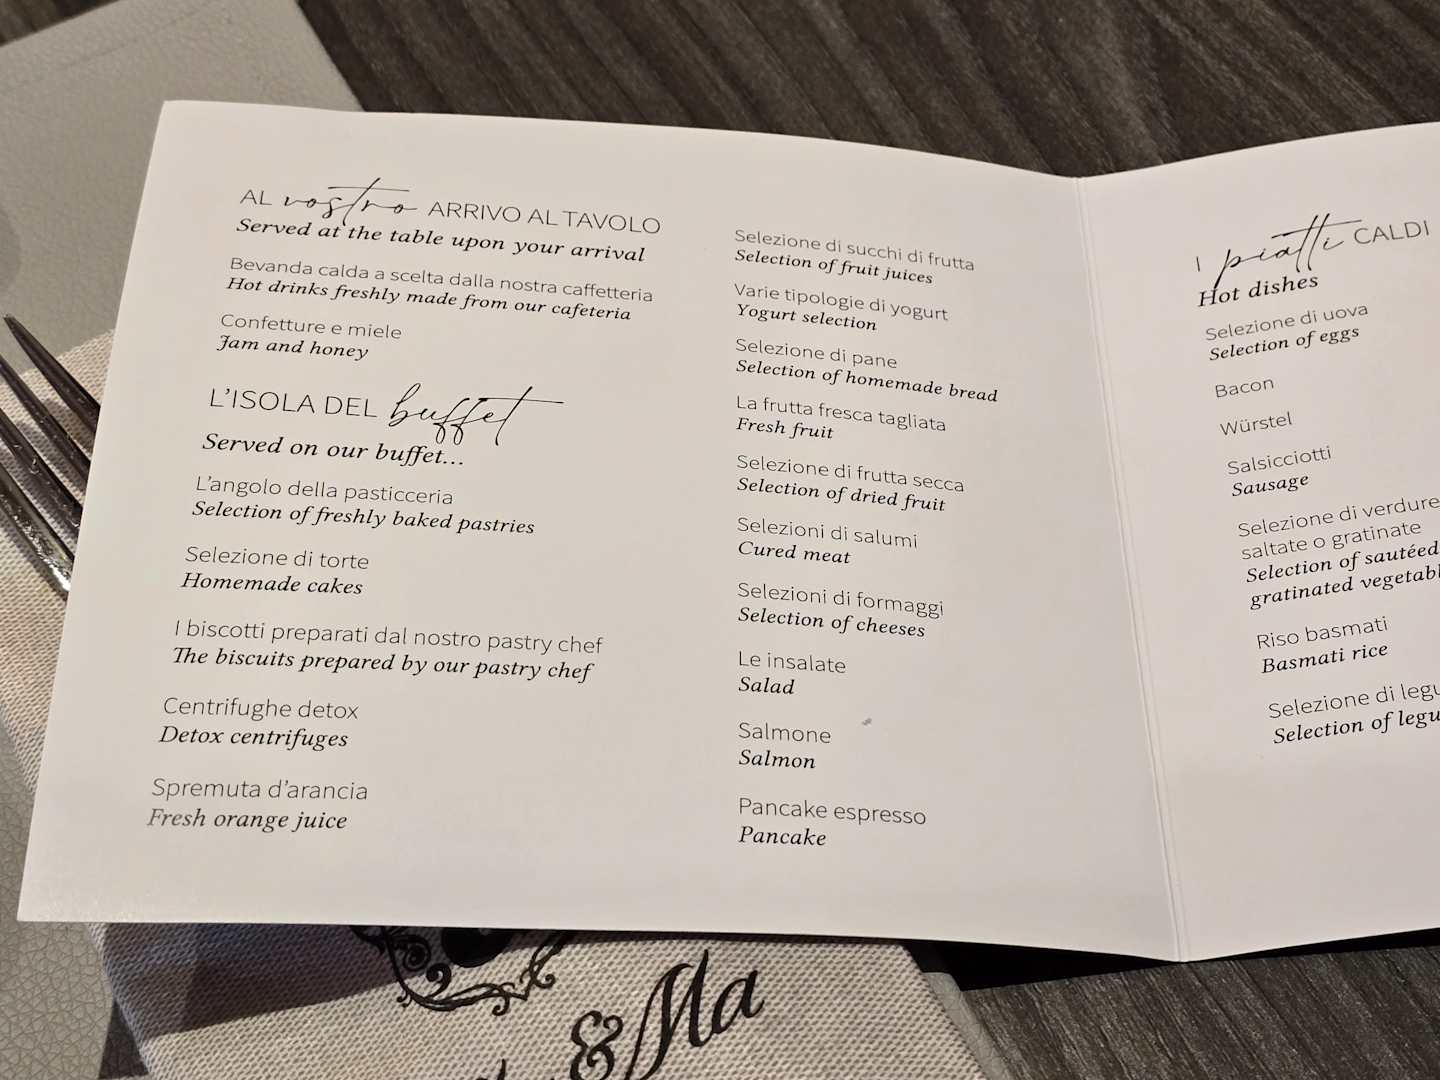 AL vostro ARRIVO AL TAVOLO
Served at the table upon your arrival
Bevanda calda a scelta dalla nostra caffetteria
Hot drinks freshly made from our cafeteria
Confetture e miele
Jam and honey
L'ISOLA DEL buffet
Served on our buffet...
L'angolo della pasticceria
Selection of freshly baked pastries
Selezione di torte
Homemade cakes
I biscotti preparati dal nostro pastry chef
The biscuits prepared by our pastry chef
Centrifughe detox
Detox centrifuges
Spremuta d'arancia
Fresh orange juice
Selezione di succhi di frutta
Selection of fruit juices
Varie tipologie di yogurt
Yogurt selection
Selezione di pane
Selection of homemade bread
La frutta fresca tagliata
Fresh fruit
Selezione di frutta secca
Selection of dried fruit
Selezioni di salumi
Cured meat
Selezioni di formaggi
Selection of cheeses
Le insalate
Salad
Salmone
Salmon
Pancake espresso
Pancake
I piatti CALDI
Hot dishes
Selezione di uova
Selection of eggs
Bacon
Würstel
Salsicciotti
Sausage
Selezione di verdure
saltate o gratinate
Selection of sautéed
gratinated
Riso basmati
Basmati rice
Selezione di
Selection of
& Ma